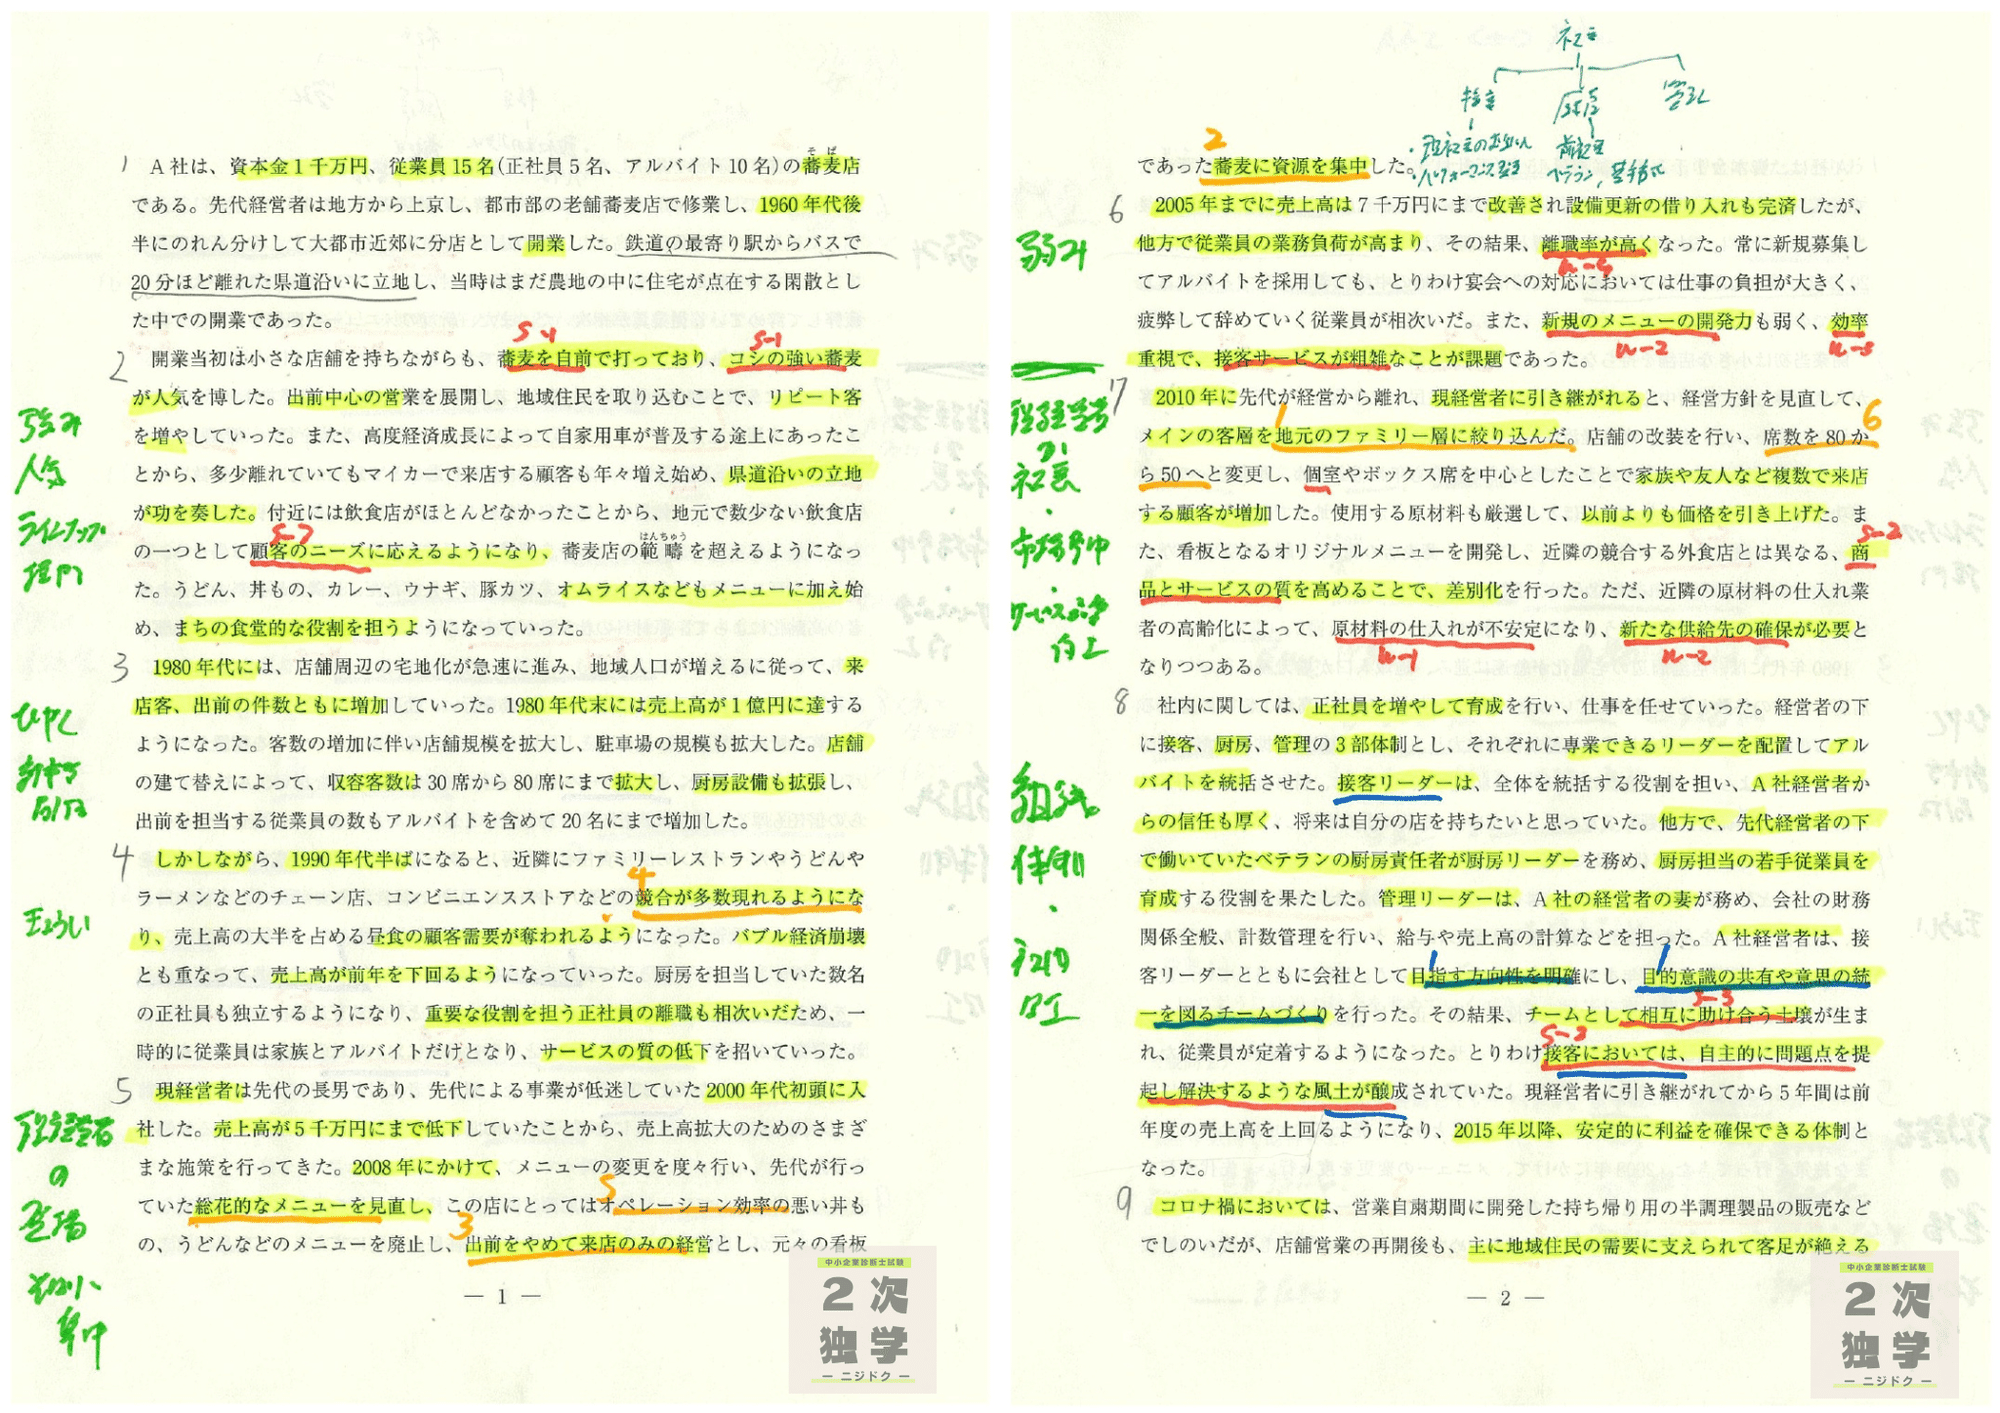 1 A社は、資本金1千万円、従業員15名(正社員5名、アルバイト10名)の蕎麦店
そば
である。先代経営者は地方から上京し、都市部の老舗蕎麦店で修業し、1960年代後
半にのれん分けして大都市近郊に分店として開業した。鉄道の最寄り駅からバスで
20分ほど離れた県道沿いに立地し、当時はまだ農地の中に住宅が点在する閑散とし
た中での開業であった。
S-1 S-1
2 開業当初は小さな店舗を持ちながらも、蕎麦を自前で打っており、コシの強い蕎麦
が人気を博した。出前中心の営業を展開し、地域住民を取り込むことで、リピート客
を増やしていった。また、高度経済成長によって自家用車が普及する途上にあったこ
とから、多少離れていてもマイカーで来店する顧客も年々増え始め、県道沿いの立地
が功を奏した。付近には飲食店がほとんどなかったことから、地元で数少ない飲食店
の一つとして顧客のニーズに応えるようになり、蕎麦店の範疇を超えるようになっ
はんちゅう
た。うどん、丼もの、カレー、ウナギ、豚カツ、オムライスなどもメニューに加え始
め、まちの食堂的な役割を担うようになっていった。
強み
人気
3 1980年代には、店舗周辺の宅地化が急速に進み、地域人口が増えるに従って、来
店客、出前の件数ともに増加していった。1980年代末には売上高が1億円に達する
ようになった。客数の増加に伴い店舗規模を拡大し、駐車場の規模も拡大した。店舗
の建て替えによって、収容客数は30席から80席にまで拡大し、厨房設備も拡張し、
出前を担当する従業員の数もアルバイトを含めて20名にまで増加した。
4 しかしながら、1990年代半ばになると、近隣にファミリーレストランやうどんや
ラーメンなどのチェーン店、コンビニエンスストアなどの競合が多数現れるようにな
4
り、売上高の大半を占める昼食の顧客需要が奪われるようになった。バブル経済崩壊
とも重なって、売上高が前年を下回るようになっていった。厨房を担当していた数名
の正社員も独立するようになり、重要な役割を担う正社員の離職も相次いだため、一
時的に従業員は家族とアルバイトだけとなり、サービスの質の低下を招いていった。
5 現経営者は先代の長男であり、先代による事業が低迷していた2000年代初頭に入
社した。売上高が5千万円にまで低下していたことから、売上高拡大のためのさまざ
まな施策を行ってきた。2008年にかけて、メニューの変更を度々行い、先代が行っ
ていた総花的なメニューを見直し、この店にとってはオペレーション効率の悪い丼も
5
の、うどんなどのメニューを廃止し、出前をやめて来店のみの経営とし、元々の看板
3
現経営者
の
登場
― 1 ―
中小企業診断士試験
2次
独学
― ニジドク ―
社長
接客 厨房 管理
2
であった蕎麦に資源を集中した。
6 2005年までに売上高は7千万円にまで改善され設備更新の借り入れも完済したが、
他方で従業員の業務負荷が高まり、その結果、離職率が高くなった。常に新規募集し
てアルバイトを採用しても、とりわけ宴会への対応においては仕事の負担が大きく、
疲弊して辞めていく従業員が相次いだ。また、新規のメニューの開発力も弱く、効率
W-2
重視で、接客サービスが粗雑なことが課題であった。
弱み
7 2010年に先代が経営から離れ、現経営者に引き継がれると、経営方針を見直して、
1 6
メインの客層を地元のファミリー層に絞り込んだ。店舗の改装を行い、席数を80か
ら50へと変更し、個室やボックス席を中心としたことで家族や友人など複数で来店
する顧客が増加した。使用する原材料も厳選して、以前よりも価格を引き上げた。ま
S-2
た、看板となるオリジナルメニューを開発し、近隣の競合する外食店とは異なる、商
品とサービスの質を高めることで、差別化を行った。ただ、近隣の原材料の仕入れ業
者の高齢化によって、原材料の仕入れが不安定になり、新たな供給先の確保が必要と
W-1 W-2
なりつつある。
現経営者
が
社長
・
市場集中
・
サービスの質
向上
8 社内に関しては、正社員を増やして育成を行い、仕事を任せていった。経営者の下
に接客、厨房、管理の3部体制とし、それぞれに専業できるリーダーを配置してアル
バイトを統括させた。接客リーダーは、全体を統括する役割を担い、A社経営者か
らの信任も厚く、将来は自分の店を持ちたいと思っていた。他方で、先代経営者の下
で働いていたベテランの厨房責任者が厨房リーダーを務め、厨房担当の若手従業員を
育成する役割を果たした。管理リーダーは、A社の経営者の妻が務め、会社の財務
関係全般、計数管理を行い、給与や売上高の計算などを担った。A社経営者は、接
客リーダーとともに会社として目指す方向性を明確にし、目的意識の共有や意思の統
S-3
一を図るチームづくりを行った。その結果、チームとして相互に助け合う土壌が生ま
S-3
れ、従業員が定着するようになった。とりわけ接客においては、自主的に問題点を提
起し解決するような風土が醸成されていた。現経営者に引き継がれてから5年間は前
年度の売上高を上回るようになり、2015年以降、安定的に利益を確保できる体制と
なった。
組織
体制
9 コロナ禍においては、営業自粛期間に開発した持ち帰り用の半調理製品の販売など
でしのいだが、店舗営業の再開後も、主に地域住民の需要に支えられて客足が絶える
― 2 ―
中小企業診断士試験
2次
独学
― ニジドク ―